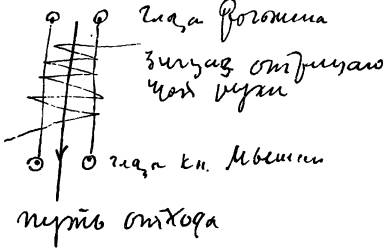 глаза Рогожина
Зигзаг отрицаю
щей руки
глаза кн. Мышкин
путь отхода